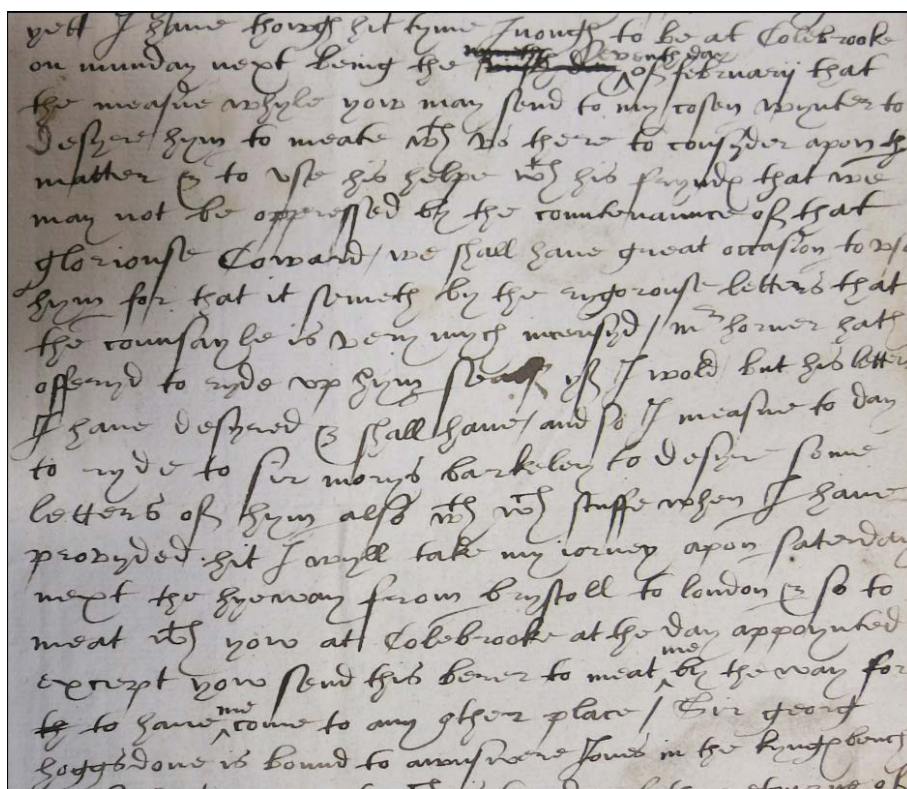 yett I have thowgh hit tyme Inough to be at Colebrooke
on munday next being the Seventh day of februarij that
the meane whyle yow may send to my cosen wynter to
desyre hym to meate wth vs there to consyder apon the
matter & to vse his helpe wth his fryndes that we
may not be oppressed by the countenaunce of that
gloriouse Coward / we shall have great occasion to vse
hym for that it semeth by the rygorouse letters that
the counsayle is very mych incensyd / mr horner hath
offeryd to ryde vp hym yf I wold but his letters
I have desyred & shall have / and so I meane to day
to ryde to sir morys barkeley to desyre some
letters of hym also wth wch stuffe when I have
provyded hit I wyll take my iorney apon saterday
next the hyeway from brystoll to london & so to
meat wth yow at Colebrooke at the day appoynted
except yow send this berer to meat me by the way for
to have me come to any other place / Sir georg
hoggsdone is bound to awnswere Iones in the kynges bench